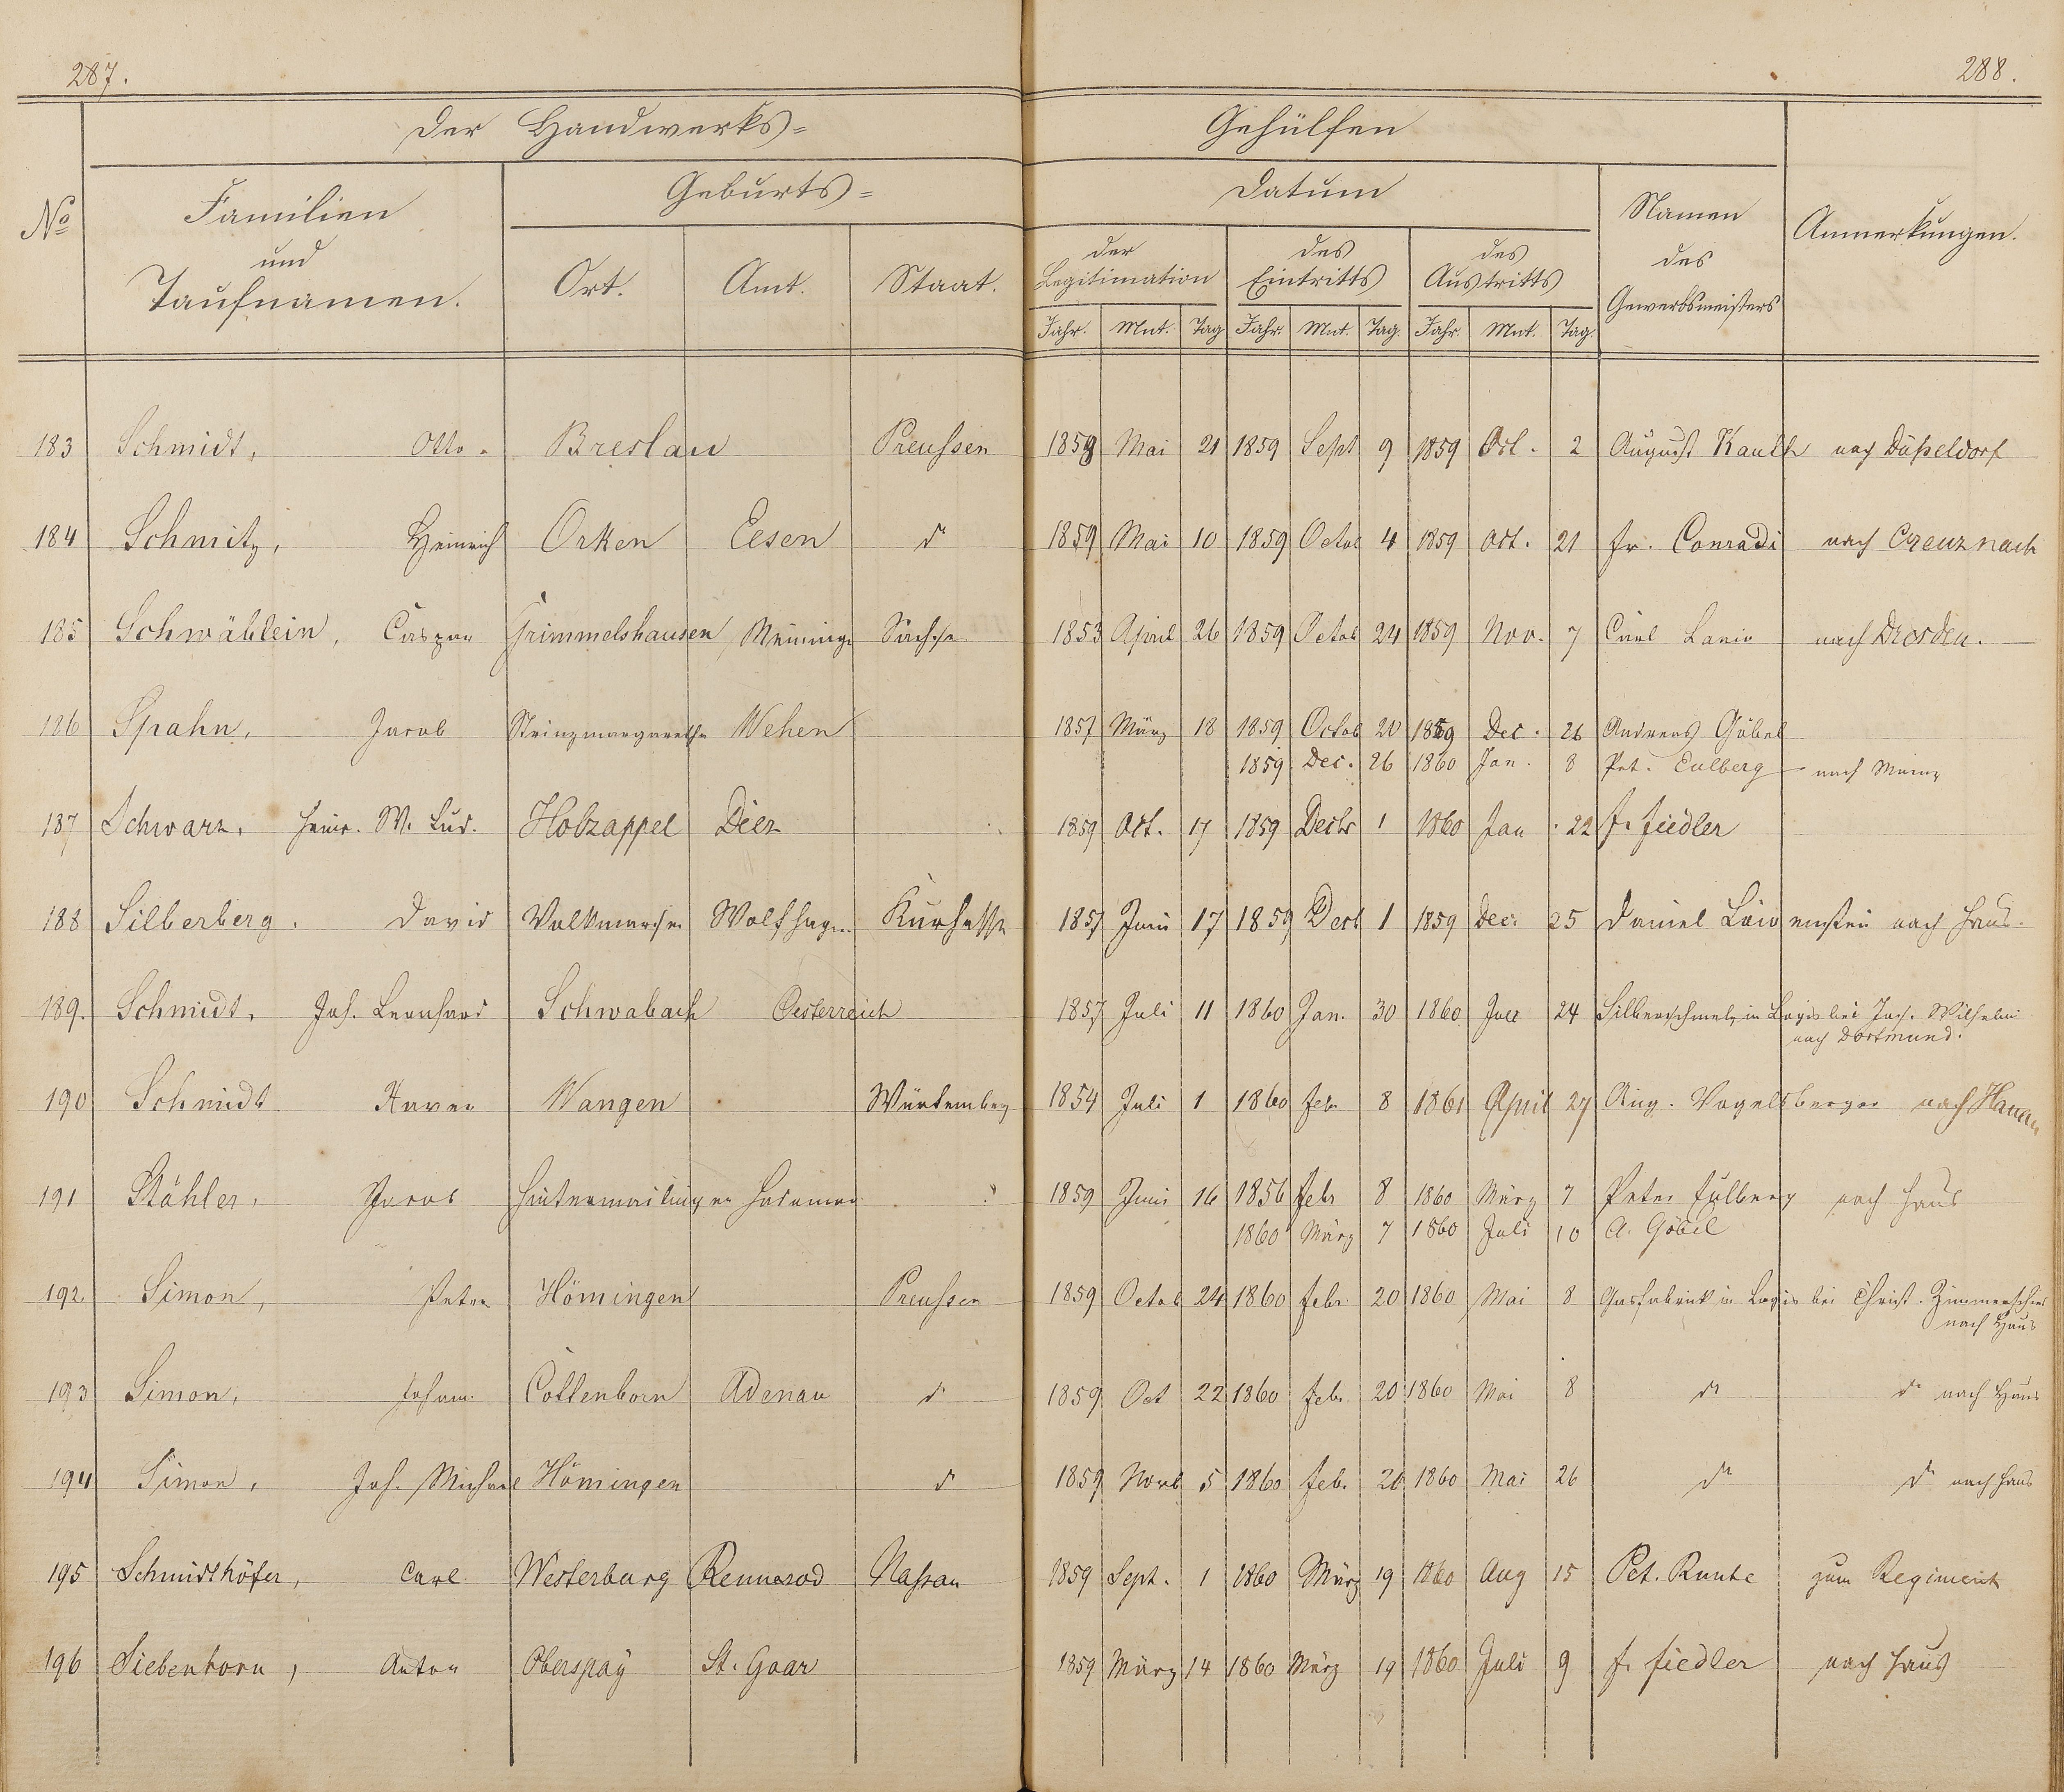 287.
288.
Der Handwerks= Gehülfen
No
Familien und Taufnamen.
Geburts=
Ort. Amt. Staat.
Datum
der Legitimation
des Eintritts
des Austritts
Jahr. Mnt. Tag Jahr. Mnt. Tag. Jahr. Mnt. Tag.
Namen des Gewerbsmeisters
Anmerkungen.
183 Schmidt, Otto. Breslau Preussen 1859 Mai 21 1859 Sept 9 1859 Oct. 2 August Kauth nach Düsseldorf
184 Schmitz, Heinrich Orken Eesen do 1859 Mai 10 1859 Octob 4 1859 Oct. 21 Fr. Conradi nach Creuznach
185 Schwäblein, Caspar Grimmelshausen Meininge Sachsen 1853 April 26 1859 Octob 24 1859 Nov. 7 Carl nach Dresden.
186 Spahn, Jacob Steinzmargarethe Wehen 1857 März 18 1859 Octob 20 1859 Dec. 26 Andreas Göbel
1859 Dec. 26 1860 Jan. 8 Pet. Eulberg nach Mainz
187 Schwarz, Heinr. W. Lud. Holzappel Diez 1859 Oct. 17 1859 Decbr 1 1860 Jan. 22 F. Fiedler
188 Silberberg. David Volkmarsen Wolfhagen Kurhessen 1857 Juni 17 1859 Decb 1 1859 Dec. 25 Daniel Löwenstein nach Haus.
189. Schmidt, Joh. Leonhard Schwabach Oesterreich 1857 Juli 11 1860 Jan. 30 1860 24 Silberschmelz in Logis bei Jach. Wilhelmi
nach Dortmund.
190 Schmidt Xaver Wangen Würtemberg 1854 Juli 1 1860 Feb 8 1861 April 27 Aug. Vogelsberger nach Hanau
191 Stähler, Jacob Hintermeilingen Hadamar 1859 Juni 16 1856 Febr 8 1860 März 7 Peter Eulberg nach Haus
1860 März 7 1860 Juli 10 A. Göbel
192 Simon, Peter Hömingen Preussen 1859 Octob 24 1860 Febr. 20 1860 Mai 8 Gasfabrick in Logis bei Christ. Zimmerschied
nach Haus
193 Simon, Johann. Cottenborn Adenau do 1859 Oct 22 1860 Feb. 20 1860 Mai 8 do do nach Haus
194 Simon, Joh. Michael Hömingen do 1859 Novb 5 1860 Feb. 26 1860 Mai 26 do do nach Haus
195 Schmidthöfer, Carl Westerburg Rennerod Nassau 1859 Sept. 1 1860 März 19 1860 Aug 15 Pet. Runte zum Regiment
196 Siebenborn, Anton Oberspay St. Goar 1859 März 14 1860 März 19 1860 Juli 9 F. Fiedler nach Haus